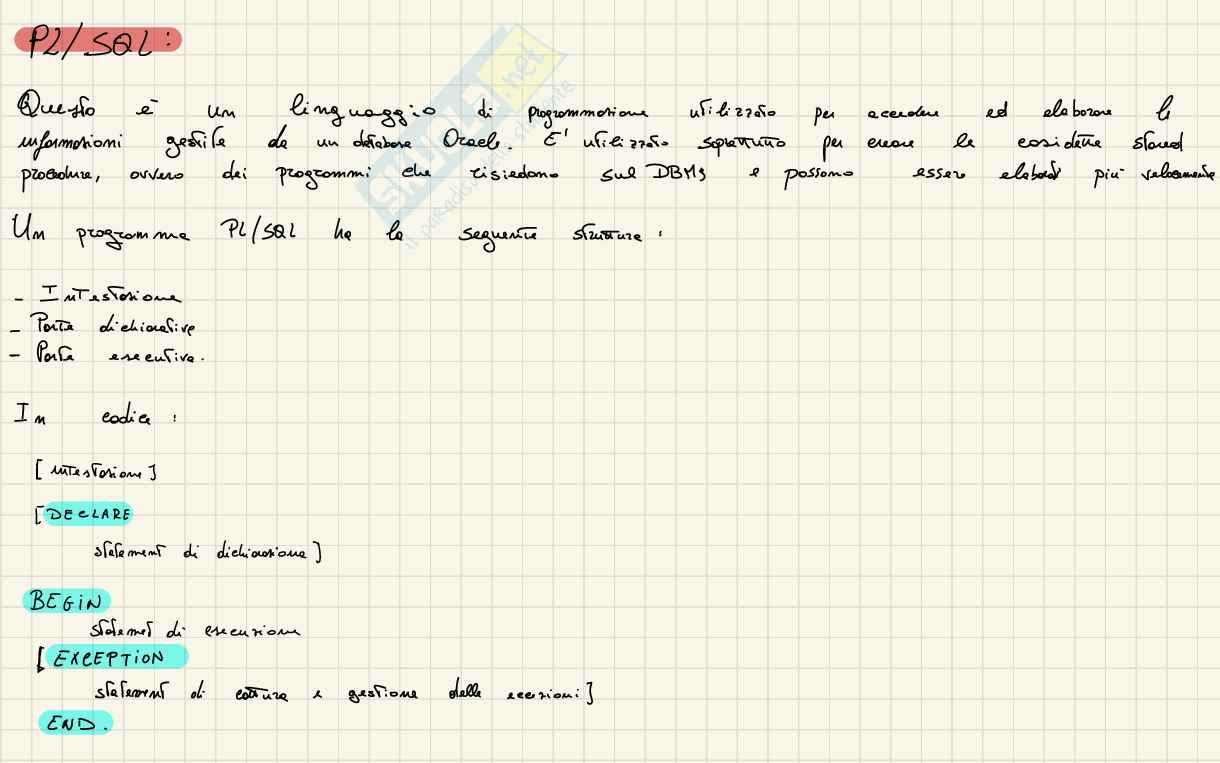 PL/SQL:
Questo è un linguaggio di programmazione utilizzato per accedere ed elaborare le
informazioni gestite da un database Oracle. E' utilizzato soprattutto per creare le cosidette stored
procedure, ovvero dei programmi che risiedono sul DBMS e possono essere elaborati più velocemente
Un programma PL/SQL ha la seguente struttura:
- Intestazione
- Parte dichiarativa
- Parte esecutiva.
In codice:
[intestazione]
[DECLARE
statement di dichiarazione]
BEGIN
statemet di esecuzione
[EXCEPTION
statement di cattura e gestione delle eccezioni]
END.
SKUOLA.net
il paradiso dello studente